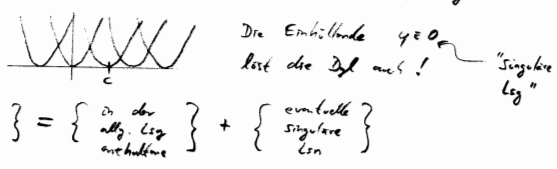 Die Einhüllende y ≡ 0
löst die Dgl auch !
"singuläre
Lsg"
c
} = { in der
allg. Lsg
enthaltene } + { eventuelle
singuläre
Lsn }